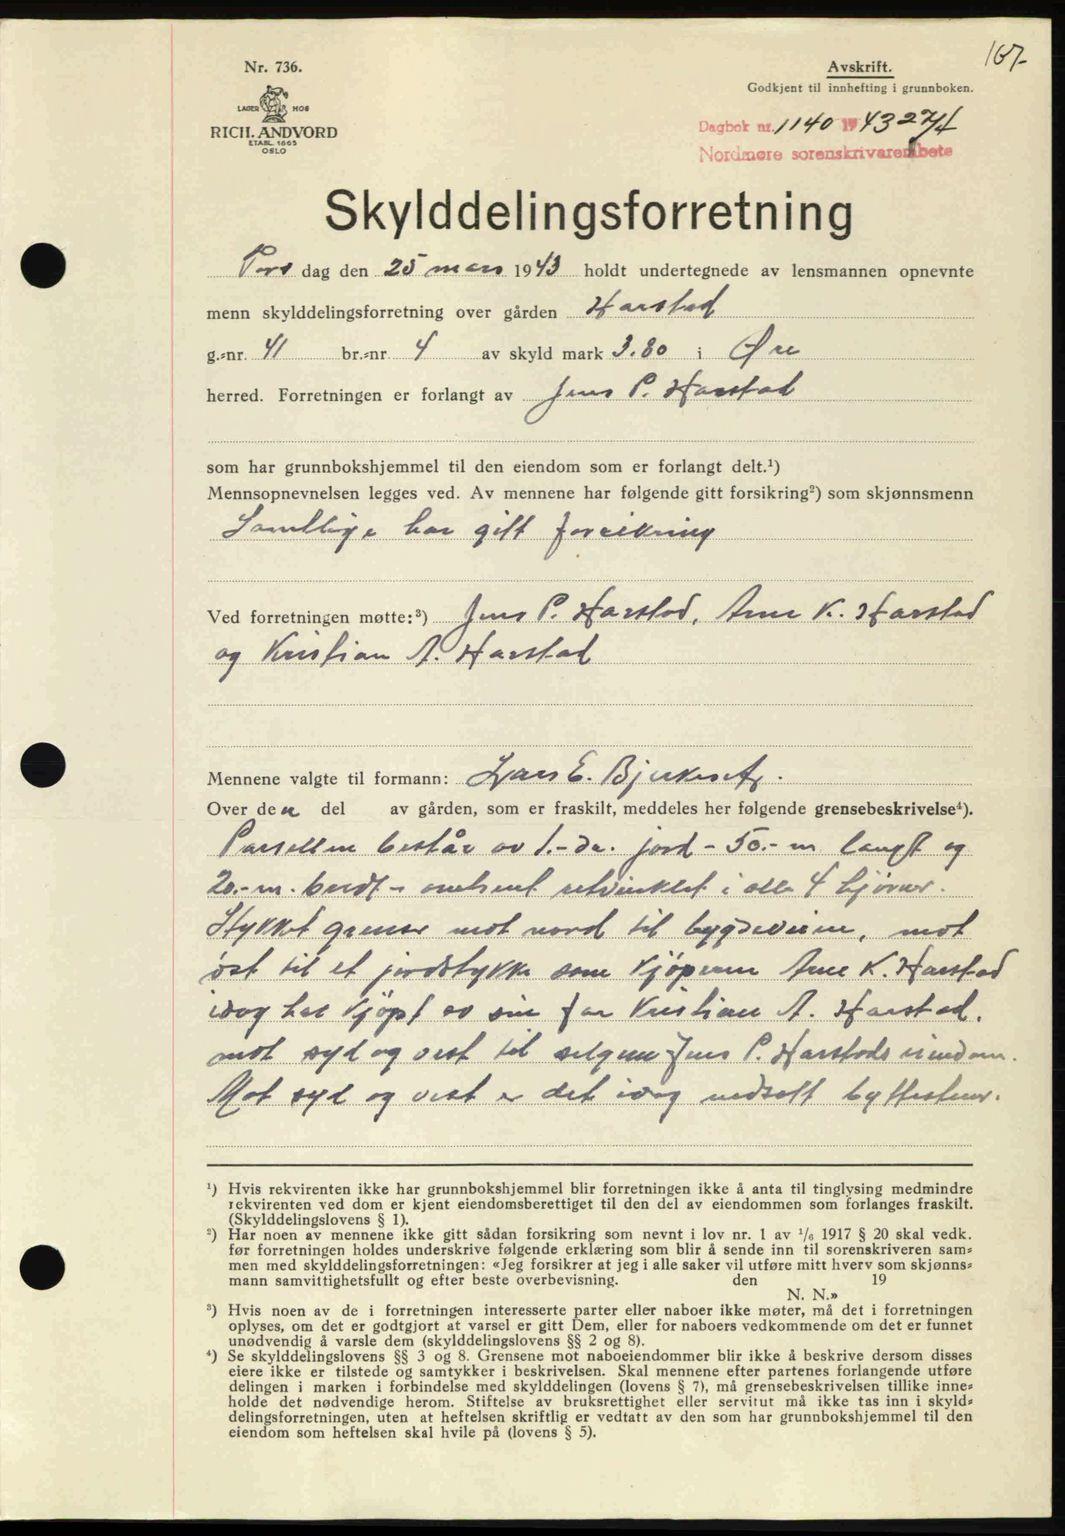 167.
Nr. 736.
LAGER HOS
RICH. ANDVORD
ETABL. 1865
OSLO
Avskrift.
Godkjent til innhefting i grunnboken.
Dagbok nr. 1140 1943 27/4
Nordmøre sorenskrivarembete
Skylddelingsforretning
Tors dag den 25 mars 1943 holdt undertegnede av lensmannen opnevnte
menn skylddelingsforretning over gården Harstad
g.=nr. 41 br.=nr 4 av skyld mark 3.80 i Øre
herred. Forretningen er forlangt av Jens P. Harstad
som har grunnbokshjemmel til den eiendom som er forlangt delt.¹)
Mennsopnevnelsen legges ved. Av mennene har følgende gitt forsikring²) som skjønnsmenn
Samtlige har gitt forsikring
Ved forretningen møtte:³) Jens P. Harstad, Arne K. Harstad
og Kristian A. Harstad
Mennene valgte til formann: Lars E. Bjerkeset.
Over den del av gården, som er fraskilt, meddeles her følgende grensebeskrivelse⁴).
Parsellen består av 1.- da. jord - 50.- m langt og
20.- m. bredt - omtrent retvinklet i alle 4 hjørner.
Stykket grenser mot nord til bygdeveien, mot
øst til et jordstykke som kjøperen Arne K. Harstad
idag har kjøpt av sin far Kristian A. Harstad,
mot syd og vest til selgeren Jens P. Harstads eiendom.
Mot syd og vest er det idag nedsatt byttestener.
¹) Hvis rekvirenten ikke har grunnbokshjemmel blir forretningen ikke å anta til tinglysing medmindre
rekvirenten ved dom er kjent eiendomsberettiget til den del av eiendommen som forlanges fraskilt.
(Skylddelingslovens § 1).
²) Har noen av mennene ikke gitt sådan forsikring som nevnt i lov nr. 1 av ¹/₆ 1917 § 20 skal vedk.
før forretningen holdes underskrive følgende erklæring som blir å sende inn til sorenskriveren sam=
men med skylddelingsforretningen: «Jeg forsikrer at jeg i alle saker vil utføre mitt hverv som skjønns=
mann samvittighetsfullt og efter beste overbevisning. den 19
N. N.»
³) Hvis noen av de i forretningen interesserte parter eller naboer ikke møter, må det i forretningen
oplyses, om det er godtgjort at varsel er gitt Dem, eller for naboers vedkommende om det er funnet
unødvendig å varsle dem (skylddelingslovens §§ 2 og 8).
⁴) Se skylddelingslovens §§ 3 og 8. Grensene mot naboeiendommer blir ikke å beskrive dersom disses
eiere ikke er tilstede og samtykker i beskrivelsen. Skal mennene efter partenes forlangende utføre
delingen i marken i forbindelse med skylddelingen (lovens § 7), må grensebeskrivelsen tillike inne=
holde det nødvendige herom. Stiftelse av bruksrettighet eller servitut må ikke tas inn i skyld=
delingsforretningen, uten at heftelsen skriftlig er vedtatt av den som har grunnbokshjemmel til den
eiendom som heftelsen skal hvile på (lovens § 5).